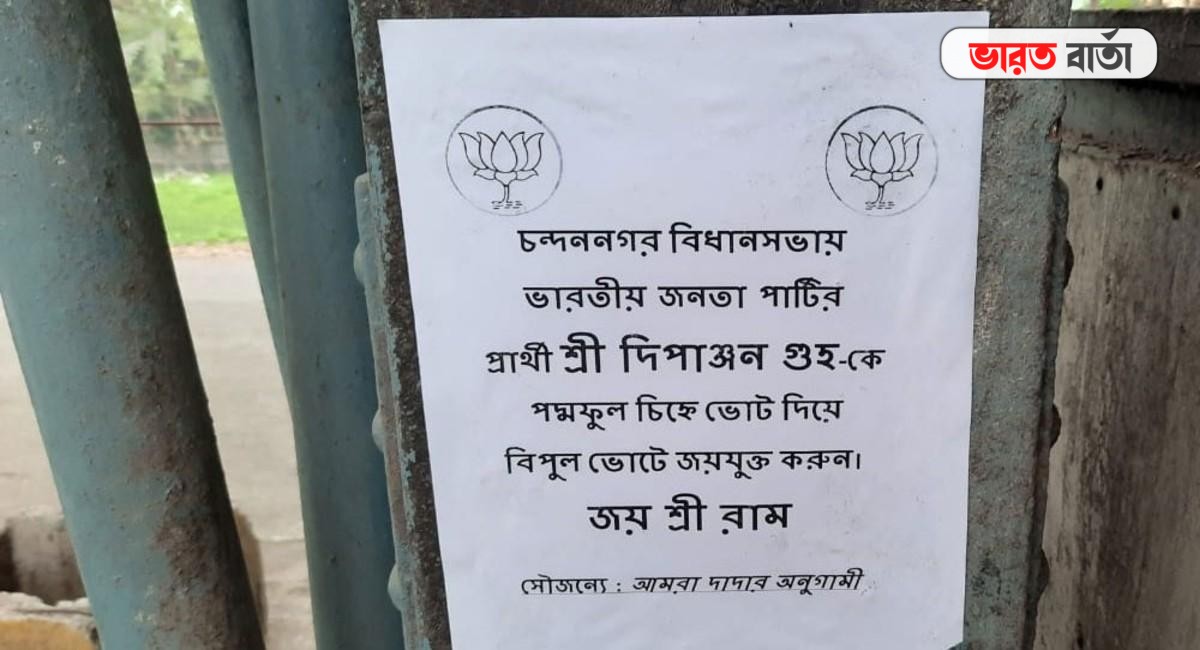 ভারত বার্তা
চন্দননগর বিধানসভায়
ভারতীয় জনতা পার্টির
প্রার্থী শ্রী দিপাঞ্জন গুহ-কে
পদ্মফুল চিহ্নে ভোট দিয়ে
বিপুল ভোটে জয়যুক্ত করুন।
জয় শ্রী রাম
সৌজন্যে : আমরা দাদার অনুগামী